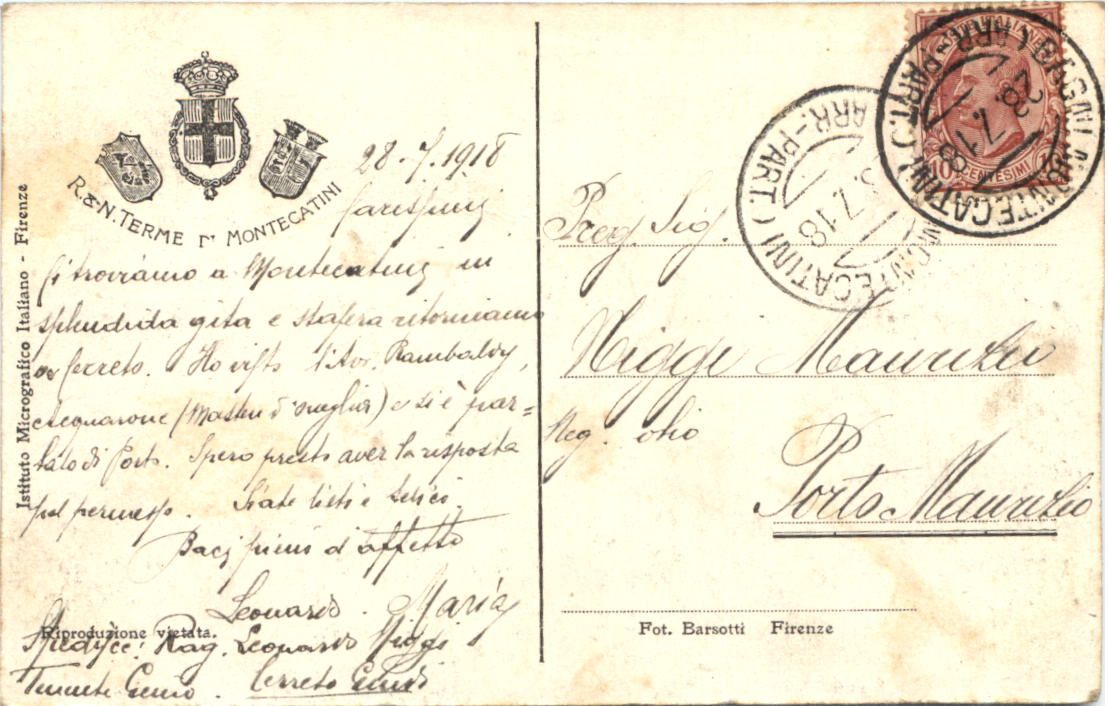 Istituto Micrografico Italiano - Firenze
R. & N. TERME DI MONTECATINI
28-7.1918
Carissimi
Ci troviamo a Montecatini in
splendida gita e stasera ritorniamo
a Cerreto. Ho visto l'Avv. Rambaldi,
Acquarone e si è par=
lato di Porto. Spero presto aver la risposta
pel permesso. Siate lieti e felici
Baci pieni d'affetto
Leonardo. Maria
Riproduzione vietata.
Spedisce: Rag. Leonardo Niggi
Tenente Genio. Cerreto Guidi
BAGNI MONTECATINI (ARR.-PART.)
28.7.18
10 CENTESIMI
MONTECATINI (ARR.-PART.)
7.18
Preg. Sig.
Niggi Maurizio
Neg. olio
Porto Maurizio
Fot. Barsotti Firenze